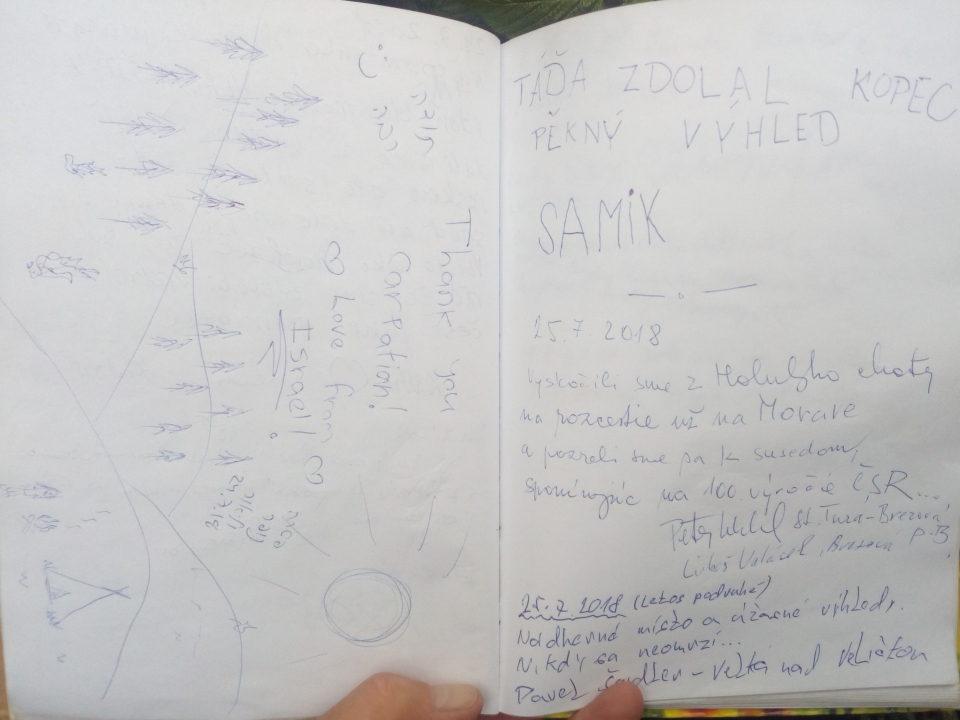 Thank you
Carpation!
♡ Love from ♡
Israel!
24.7.18
TÁĎA ZDOLAL KOPEC
PĚKNÝ VÝHLED
SAMiK
25.7. 2018
Vyskočili sme z Holubyho chaty
na rozcestie už na Morave
a pozreli sme sa k susedom,
spomínajúc na 100 výročie ČSR...
St. Turá-Brezová
Brezová P.B
25.7.2018 (Letos podruhé)
Nádherné místo a úžasné výhledy.
Nikdy sa neomrzí...
Pavel - Velká nad Veličkou